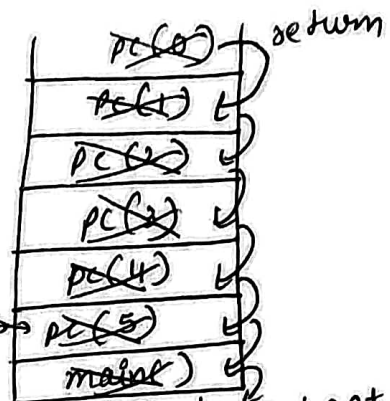 pc(0) return
pc(1)
pc(2)
pc(3)
pc(4)
pc(5)
main()